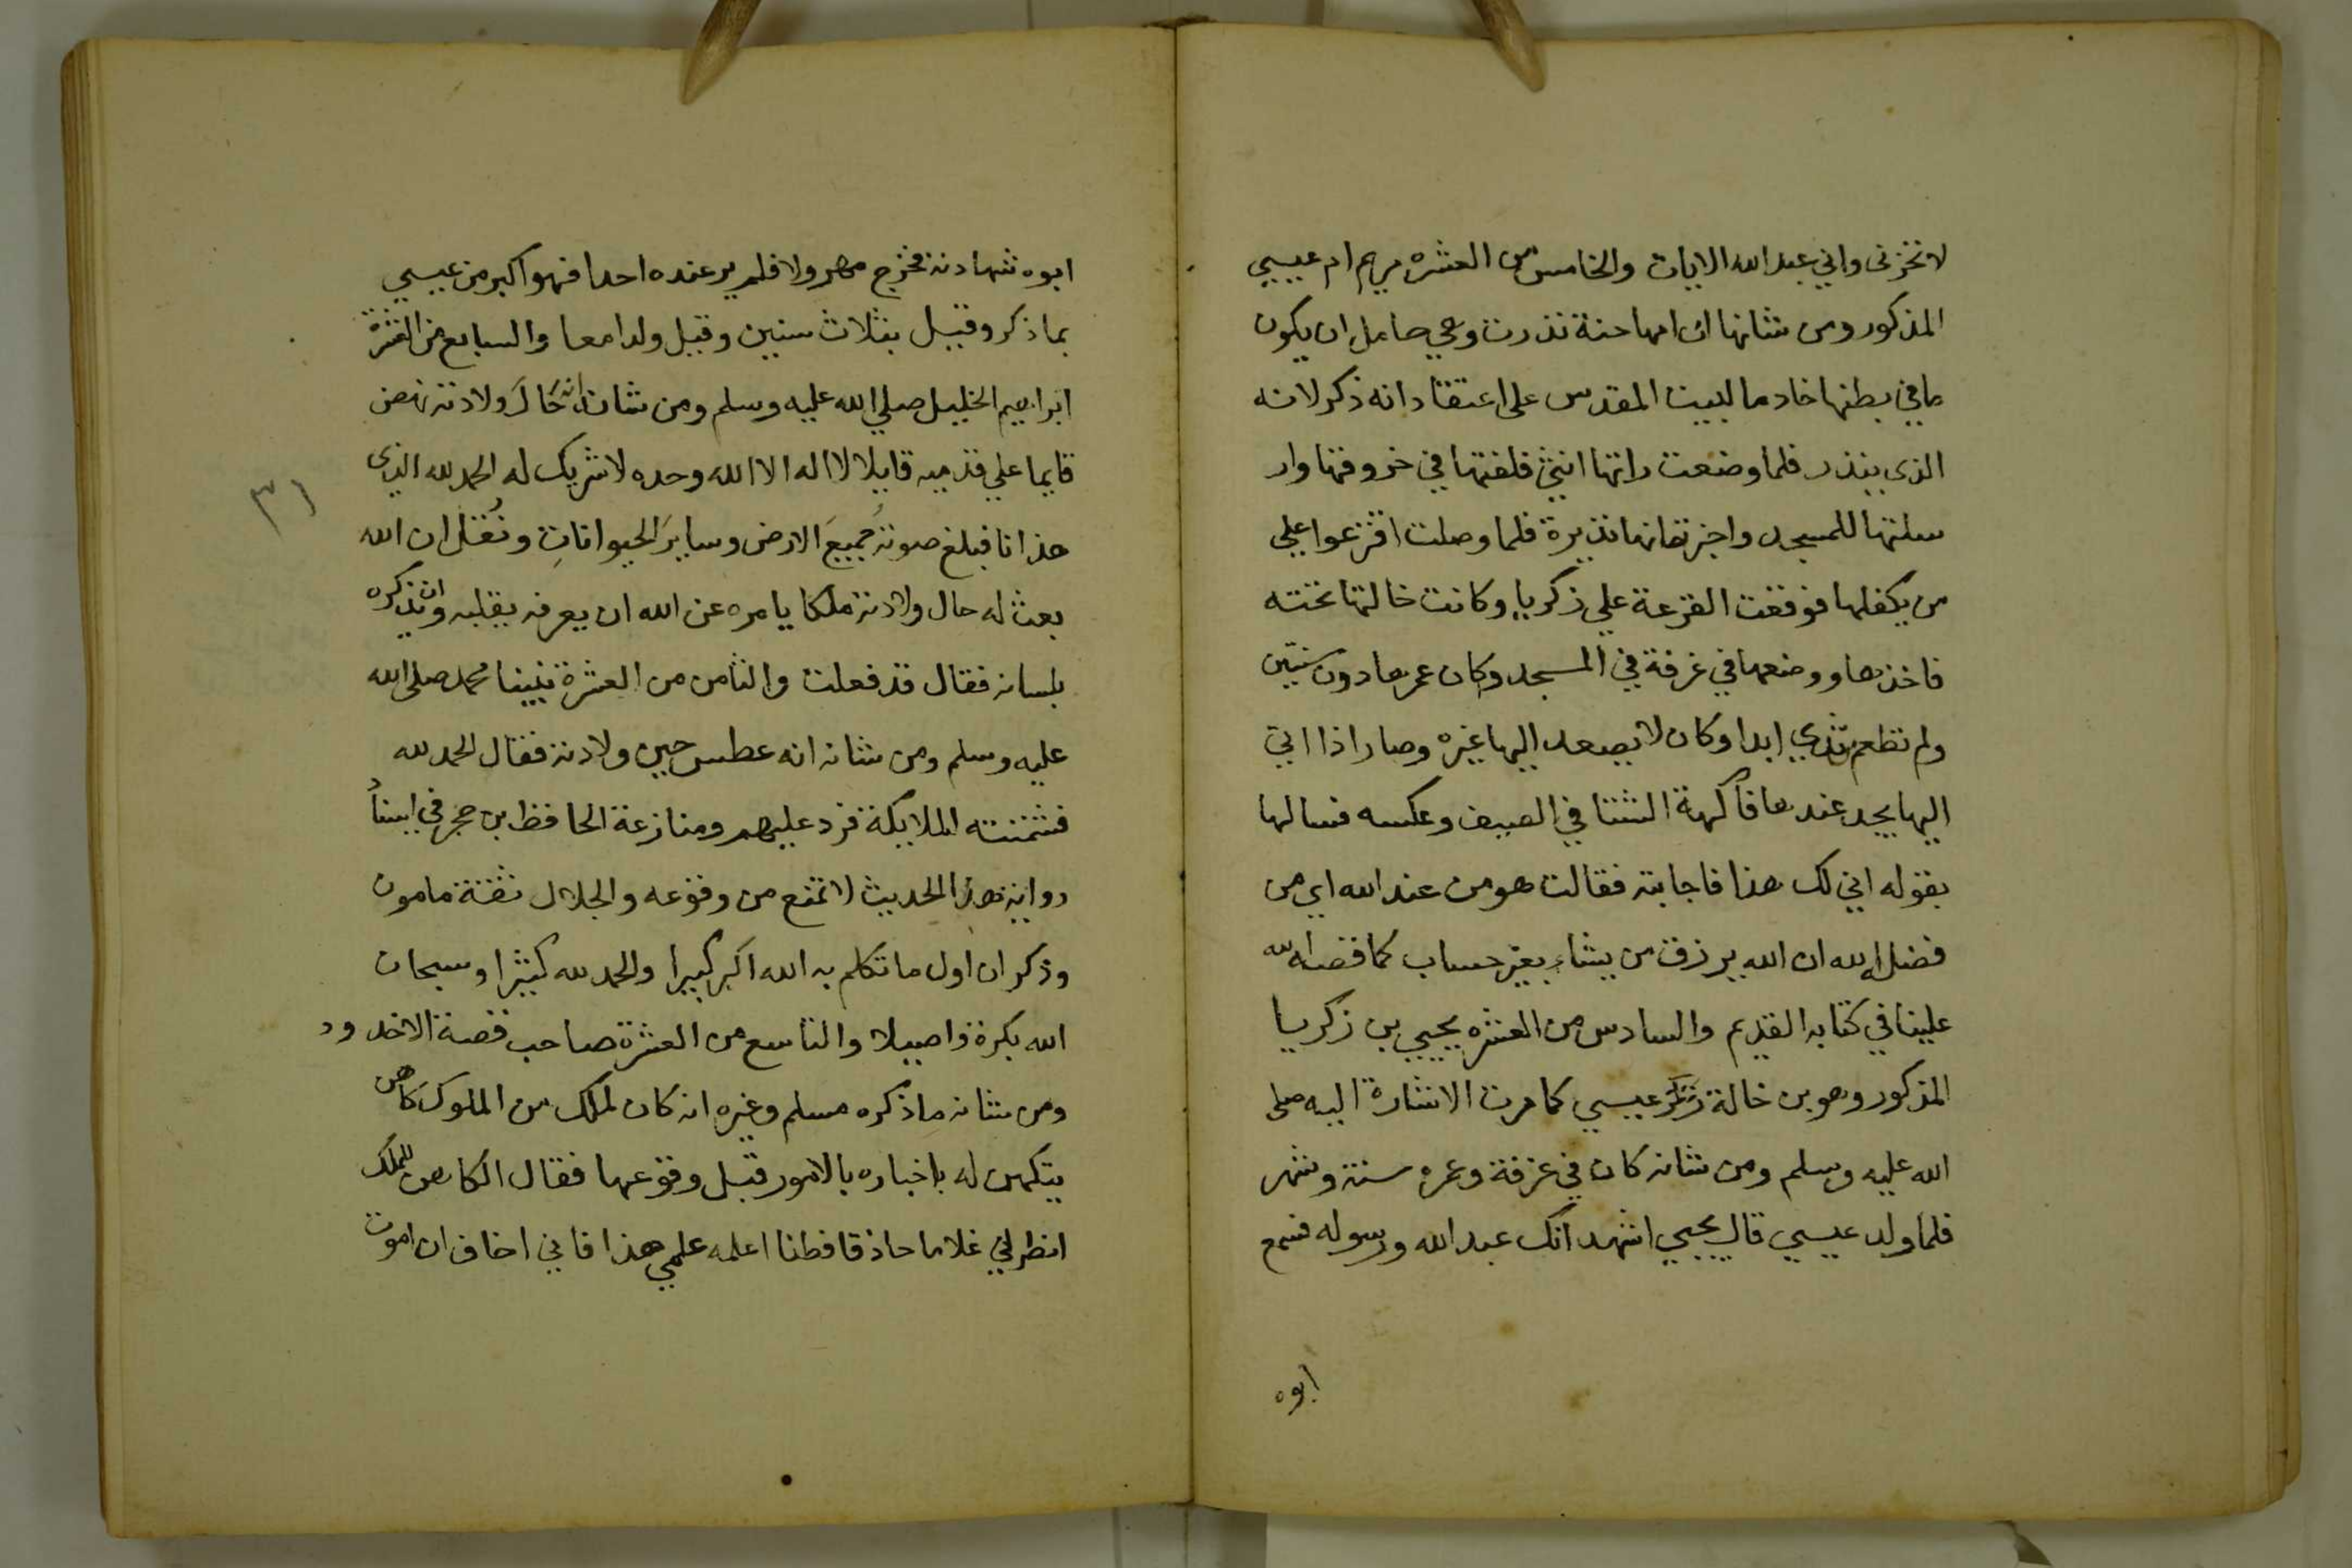 لا تخزنى واني عبد الله الايات والخامس من العشره مريم ام عيسي
المذكور ومن شانها ان امها حنة نذرت وهي حامل ان يكون
ما في بطنها خادما لبيت المقدس على اعتقاد انه ذكر لانه
الذى ينذر فلما وضعت راتها انثي فلفتها في خروفتها وار
سلتها للمسجد واخبرتهم انها نذيرة فلما وصلت اقترعوا علي
من يكفلها فوقعت القرعة علي زكريا وكانت خالتها تحته
فاخذها ووضعها في غرفة في المسجد وكان عمرها دون سنتين
ولم تطعم ثدي ابدا وكان لا يصعد اليها غيره وصار اذا اتي
اليها يجد عندها فاكهة الشتا في الصيف وعكسه فسالها
بقوله اني لك هذا فاجابته فقالت هو من عند الله اي من
فضل الله ان الله يرزق من يشاء بغير حساب كما قصه الله
علينا في كتابه القديم والسادس من العشره يحيي بن زكريا
المذكور وهو بن خالة عيسي كما مرت الاشارة اليه صلى
الله عليه وسلم ومن شانه كان في غرفة وعمره سنة وشهر
فلما ولد عيسي قال يحيي اشهد انك عبد الله ورسوله فسمع
ابوه
ابوه شهادته فخرج مهرولا فلم ير عنده احدا فهو اكبر من عيسي
بما ذكر وقيل بثلاث سنين وقيل ولدا معا والسابع من العشرة
ابراهيم الخليل صلي الله عليه وسلم ومن شانه انه حَالَ ولادته نهض
قايما علي قدميه قايلا لا اله الا الله وحده لا شريك له الحمد لله الذى
هذانا فبلغ صوته جميعَ الارض وسايرَ الحيواناتِ ونُقل ان الله
بعث له حال ولادته ملكا يامره عن الله ان يعرفه بقلبه وان يذكره
بلسانه فقال قد فعلت والثامن من العشرة نبينا محمد صلى الله
عليه وسلم ومن شانه انه عطس حين ولادته فقال الحمد لله
فشمتته الملايكة فرد عليهم ومنازعة الحافظ بن حجر في
رواية هذا الحديث لا تمنع من وقوعه والجلال ثقة مامون
وذكر ان اول ما تكلم به الله اكبر كبيرا والحمد لله كثيرا وسبحان
الله بكرة واصيلا والتاسع من العشرة صاحب قصة الاخدود
ومن شانه ما ذكره مسلم وغيره انه كان لملك من الملوك كاهن
يتكهن له باخباره بالامور قبل وقوعها فقال الكاهن للملك
انظر لي غلاما حاذقا فطنا اعلمه علمي هذا فاني اخاف ان اموت
٣١